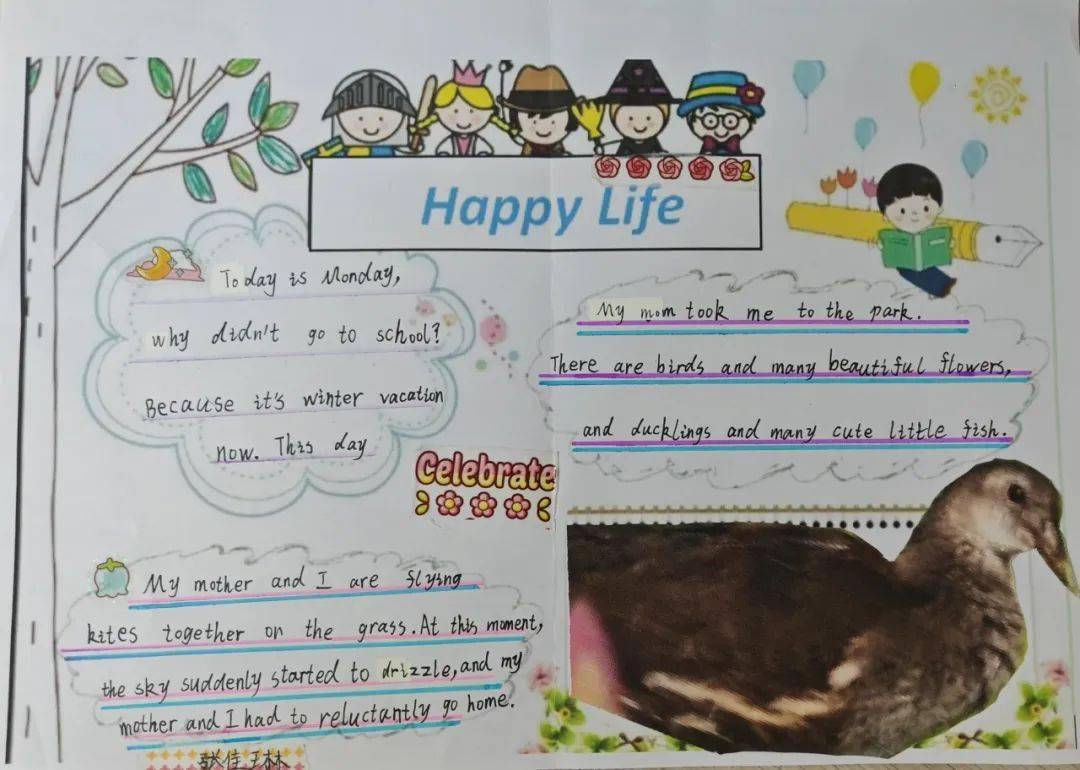 Happy Life
Today is Monday,
why didn't go to school?
Because it's winter vacation
now. This day
My mom took me to the park.
There are birds and many beautiful flowers,
and ducklings and many cute little fish.
Celebrate
My mother and I are flying
kites together on the grass. At this moment,
the sky suddenly started to drizzle, and my
mother and I had to reluctantly go home.
张佳琳